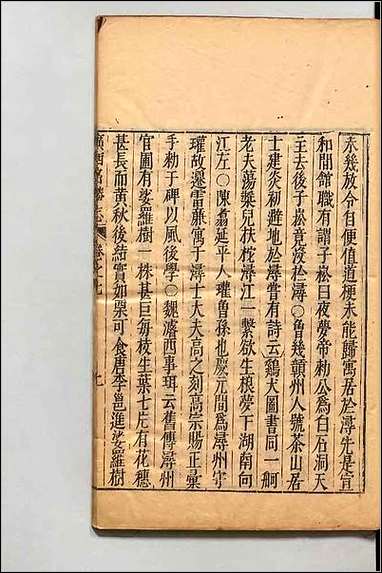 未幾放令自便值道梗未能歸寓居於潯先是宣
和間館職有謂子崧曰夜夢帝勅公為白石洞天
主去後子崧竟沒於潯○曾幾贛州人號茶山居
士建炎初避地於潯嘗有詩云鷄犬圖書同一舸
老夫蕩槳兒扶柁潯江一擊欲生根夢下湖南向
江左○陳翥延平人瓘曾孫也慶元間爲潯州守
瓘故還雷藤寓于潯士大夫高之刻高宗賜正彙
手勅于碑以風後學○魏濬西事珥云舊傳潯州
官圃有娑羅樹一株甚巨每枝生葉七片有花穗
甚長而黃秋後結實如栗可食唐李邕進娑羅樹
廣西名勝志 卷之七 九